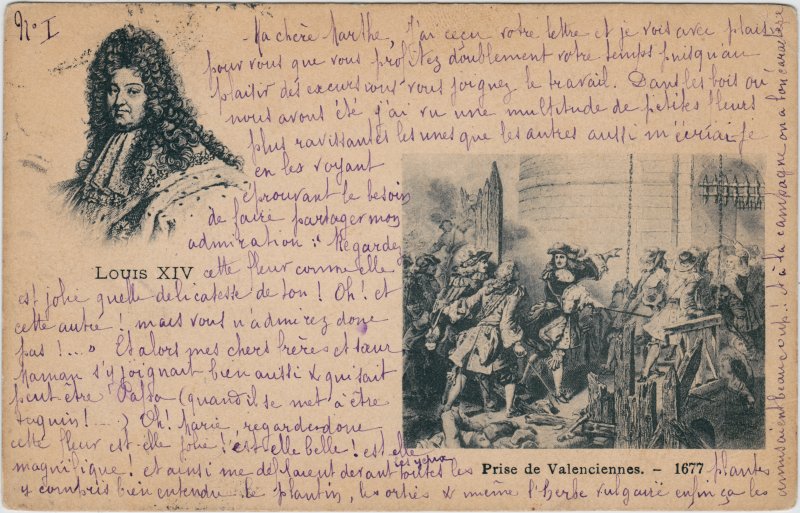 No I
Ma chère Marthe, J'ai reçu votre lettre et je vois avec plaisir
pour vous que vous profitez doublement votre temps puisqu'au
plaisir des excursions vous joignez le travail. Dans les bois où
nous avons été j'ai vu une multitude de petites fleurs
plus ravissantes les unes que les autres aussi m'écriai-je
en les voyant
éprouvant le besoin
de faire partager mon
admiration : " Regardez
LOUIS XIV
cette fleur comme elle
est jolie quelle délicatesse de ton ! Oh ! et
cette autre ! mais vous n'admirez donc
pas !... " Et alors mes chers frères et sœur
Maman s'y joignant bien aussi & qui sait
peut être Papa (quand il se met à être
taquin !....) Oh ! Marie, regarde donc
cette fleur est-elle jolie ! est-elle belle ! est-elle
magnifique ! et ainsi me défilaient devant les yeux toutes les
Prise de Valenciennes. - 1677
plantes
y compris bien entendu le plantin, les orties & même l'herbe vulgaire enfin ça les
amusaient beaucoup ! et à la campagne on a bon caractère